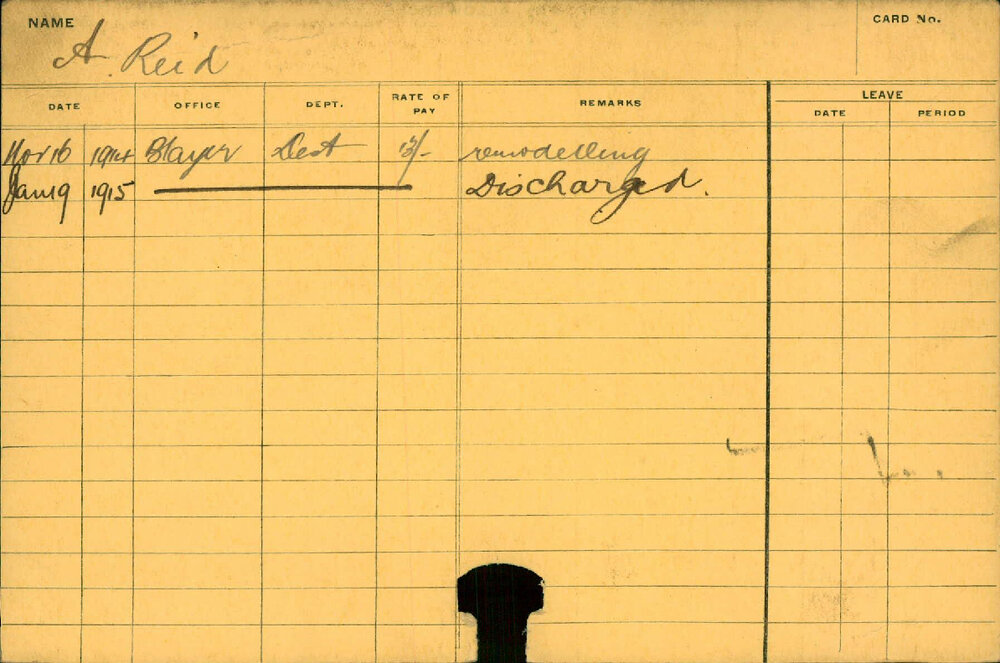 NAME
A. Reid
CARD No.
DATE OFFICE DEPT. RATE OF PAY REMARKS LEAVE
DATE PERIOD
Nov 16 1914 Slayer Dest 13/- remodelling
Jan 19 1915 Discharged.